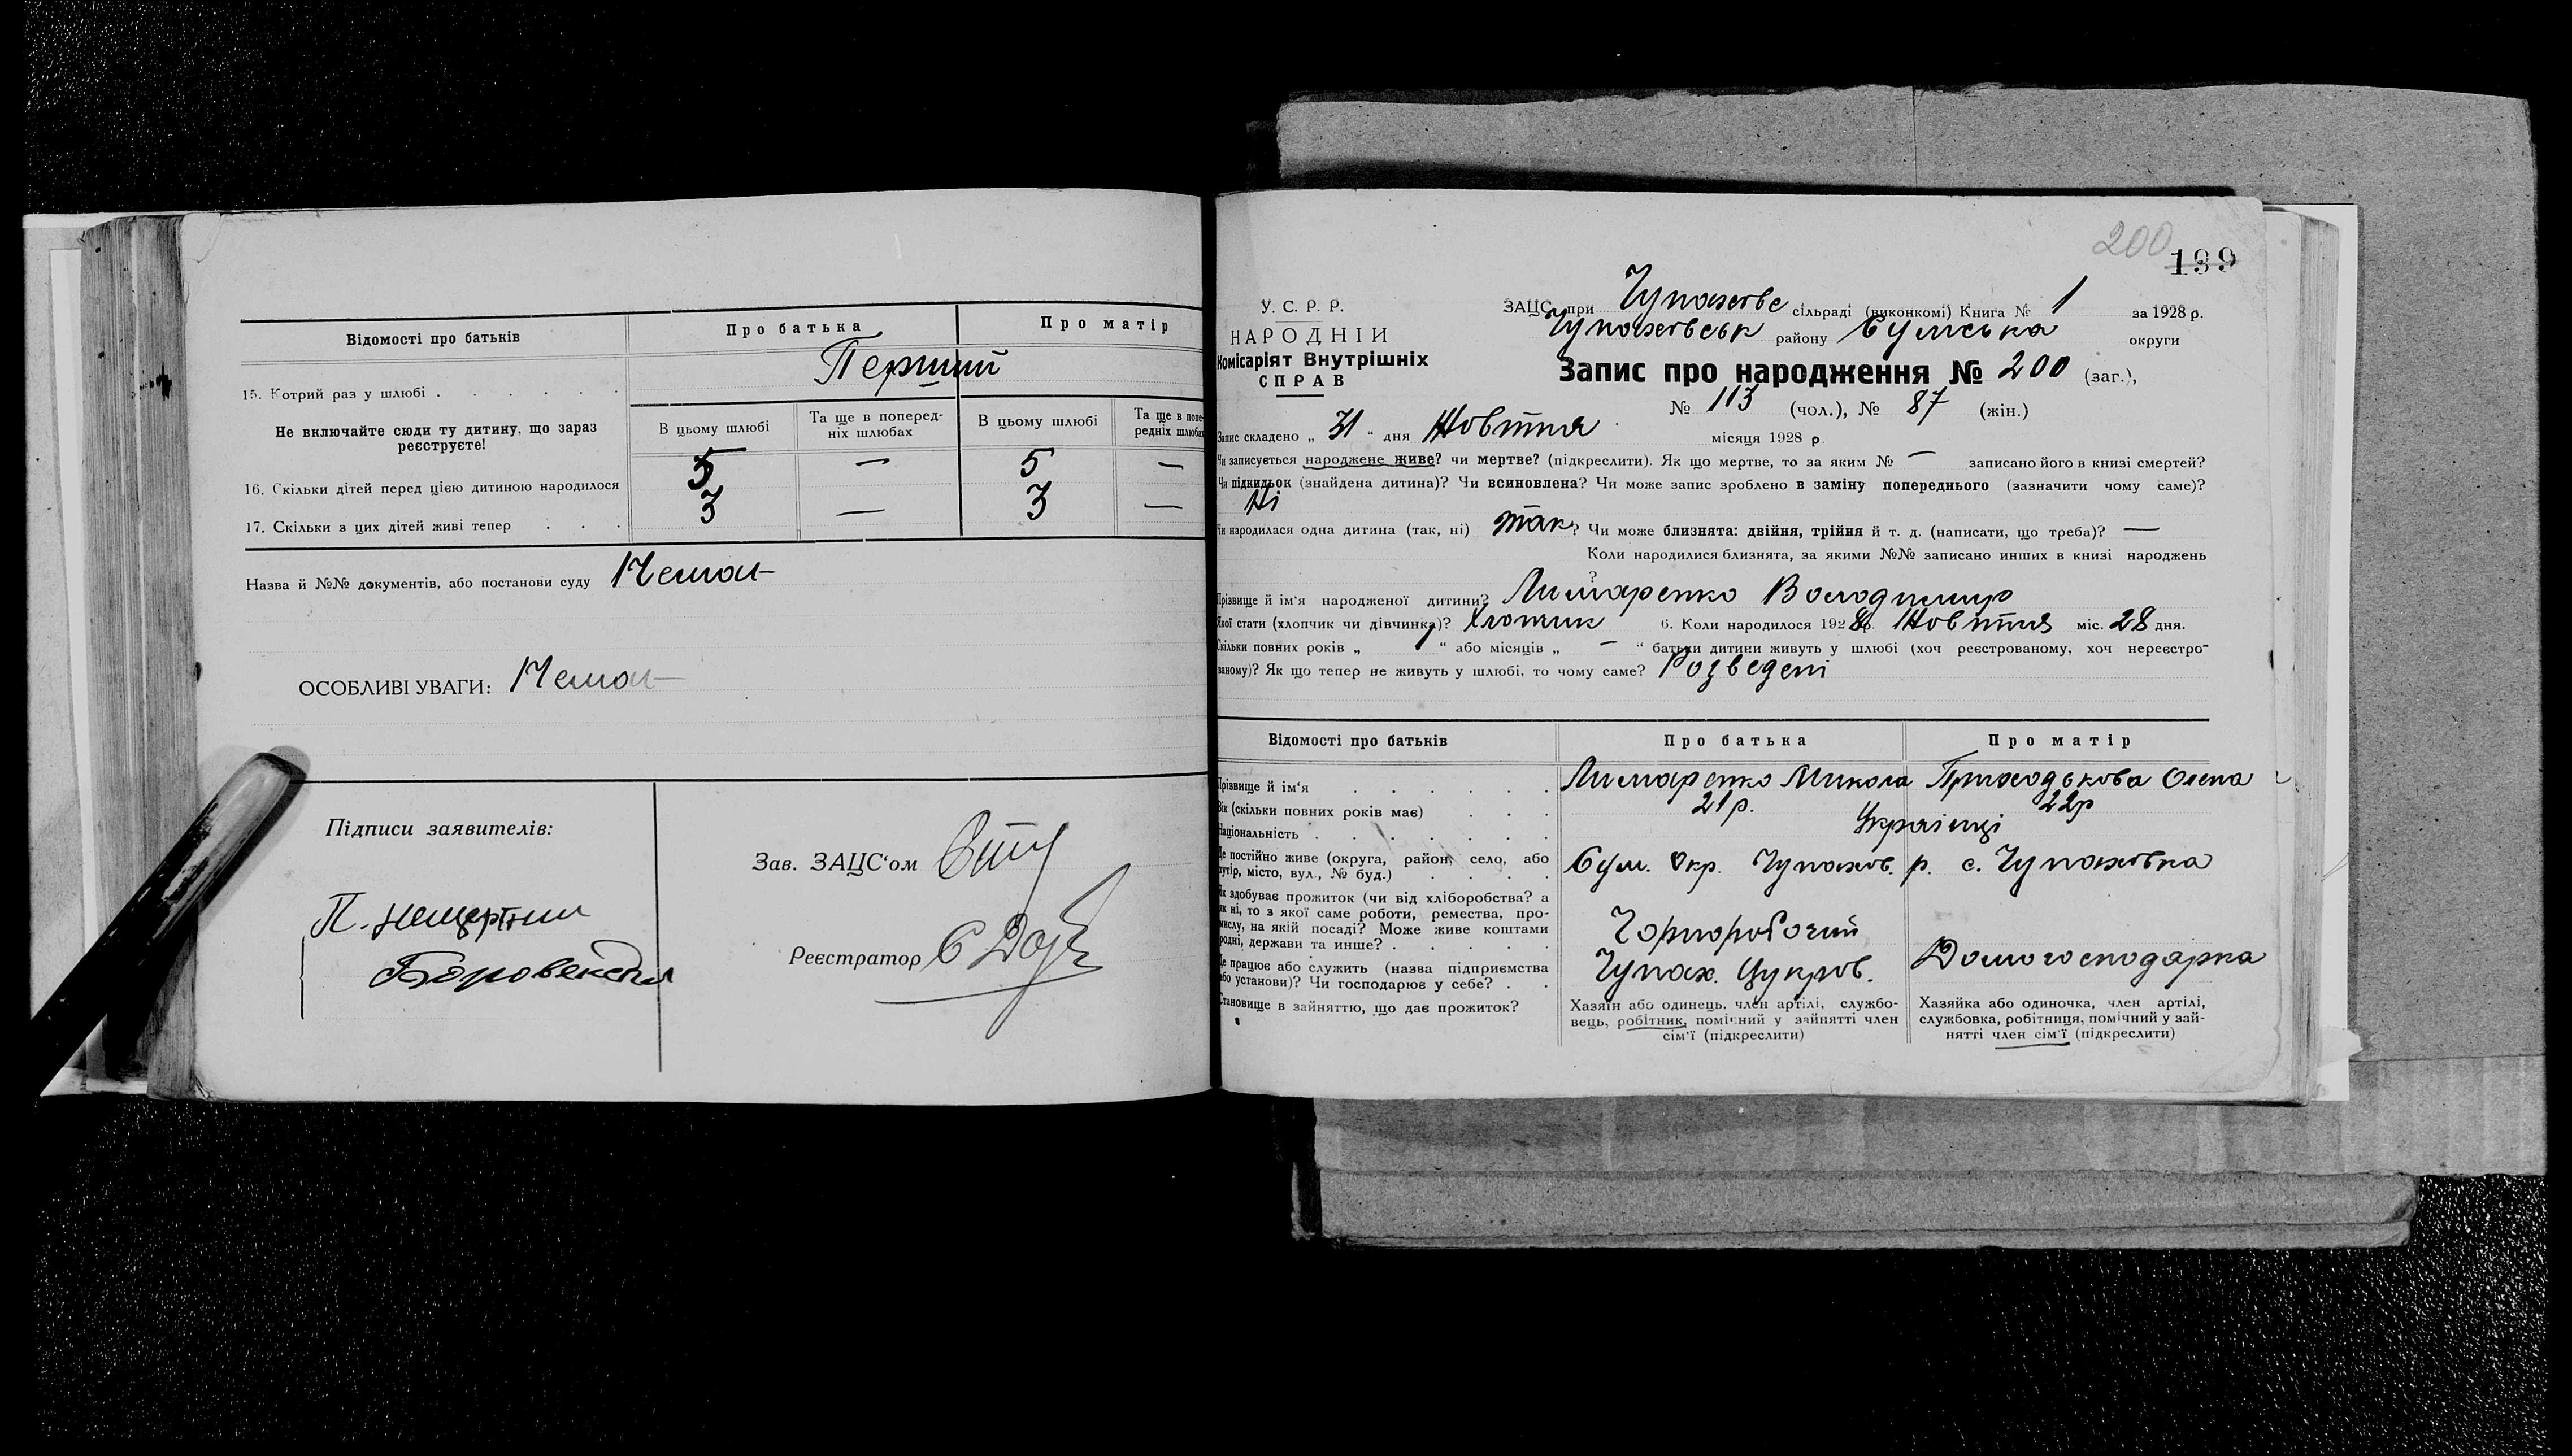 Відомості про батьків
Про батька
Про матір
15. Котрий раз у шлюбі . . . . . .
Перший
Не включайте сюди ту дитину, що зараз
реєструєте!
В цьому шлюбі
Та ще в поперед-
ніх шлюбах
В цьому шлюбі
Та ще в попе-
редніх шлюбах
16. Скільки дітей перед цією дитиною народилося
5 — 5 —
17. Скільки з цих дітей живі тепер . . .
3 — 3 —
Назва й №№ документів, або постанови суду Немає
ОСОБЛИВІ УВАГИ: Немає
Підписи заявителів:
Зав. ЗАЦС'ом
Реєстратор
200
199
У. С. Р. Р.
НАРОДНІЙ
Комісаріят Внутрішніх
СПРАВ
ЗАЦС при Чупахівс сільраді (виконкомі) Книга № 1 за 1928 р.
Чупахівськ району Сумська округи
Запис про народження № 200 (заг.),
№ 113 (чол.), № 87 (жін.)
Запис складено „ 31 " дня Жовтня місяця 1928 р.
Чи записується народжене живе? чи мертве? (підкреслити). Як що мертве, то за яким № — записано його в книзі смертей?
Чи підкидьок (знайдена дитина)? Чи всиновлена? Чи може запис зроблено в заміну попереднього (зазначити чому саме)?
Ні
Чи народилася одна дитина (так, ні) так? Чи може близнята: двійня, трійня й т. д. (написати, що треба)? —
Коли народилися близнята, за якими №№ записано инших в книзі народжень
?
Прізвище й ім'я народженої дитини? Лимаренко Володимир
Якої стати (хлопчик чи дівчинка)? Хлопчик 6. Коли народилося 1928 р. Жовтня міс. 28 дня.
Скільки повних років „ 1 " або місяців „ — " батьки дитини живуть у шлюбі (хоч реєстрованому, хоч нереєстро-
ваному)? Як що тепер не живуть у шлюбі, то чому саме? Розведені
Відомості про батьків
Про батька
Про матір
Прізвище й ім'я . . . . . .
Лимаренко Микола
Приходькова Олена
Вік (скільки повних років має) . . .
21 р.
22 р
Національність . . . . . . .
Українці
Де постійно живе (округа, район, село, або
хутір, місто, вул., № буд.) . . . .
Сум. Окр. Чупахов. р. с. Чупахівка
Як здобуває прожиток (чи від хліборобства? а
як ні, то з якої саме роботи, ремества, про-
мислу, на якій посаді? Може живе коштами
родні, держави та инше? . . . . .
Чорноробочий
Де працює або служить (назва підприємства
або установи)? Чи господарює у себе? . .
Чупах. Цукров.
Домогосподарка
Становище в зайняттю, що дає прожиток?
Хазяїн або одинець, член артілі, службо-
вець, робітник, помічний у зайнятті член
сім'ї (підкреслити)
Хазяйка або одиночка, член артілі,
службовка, робітниця, помічний у зай-
нятті член сім'ї (підкреслити)